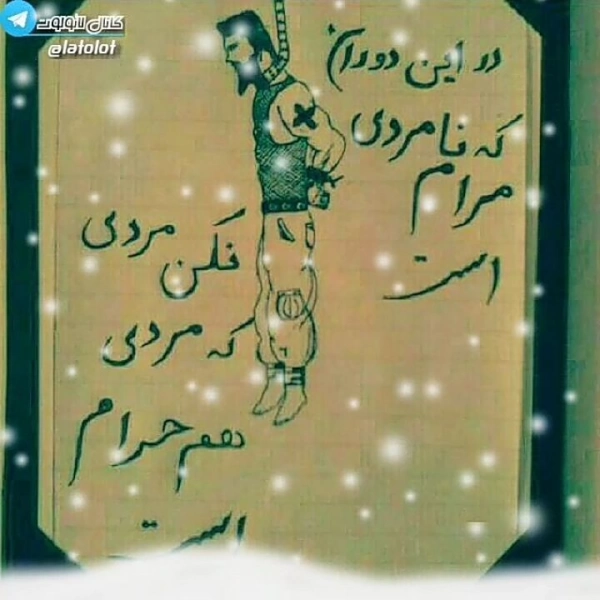 کانال لاتوبوت
@latolot
در این دوران
که نامردی
مرام
است
نکن مردی
که مردی
هم حرام
است